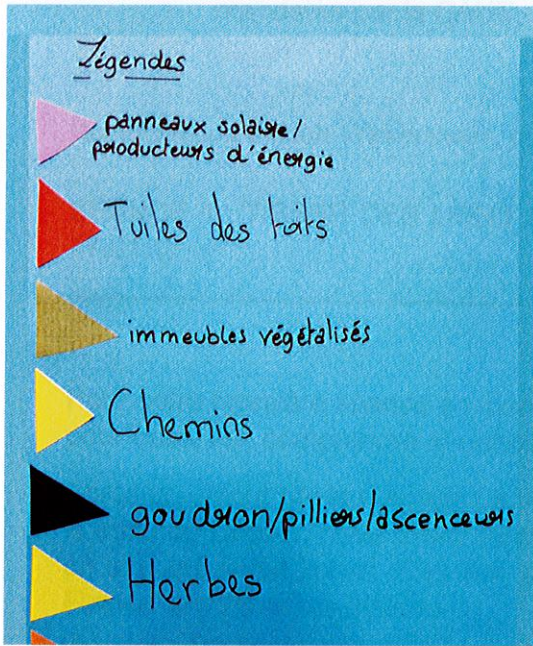 Légendes
panneaux solaire/
producteurs d'énergie
Tuiles des toits
immeubles végétalisés
Chemins
goudron/pilliers/ascenceurs
Herbes